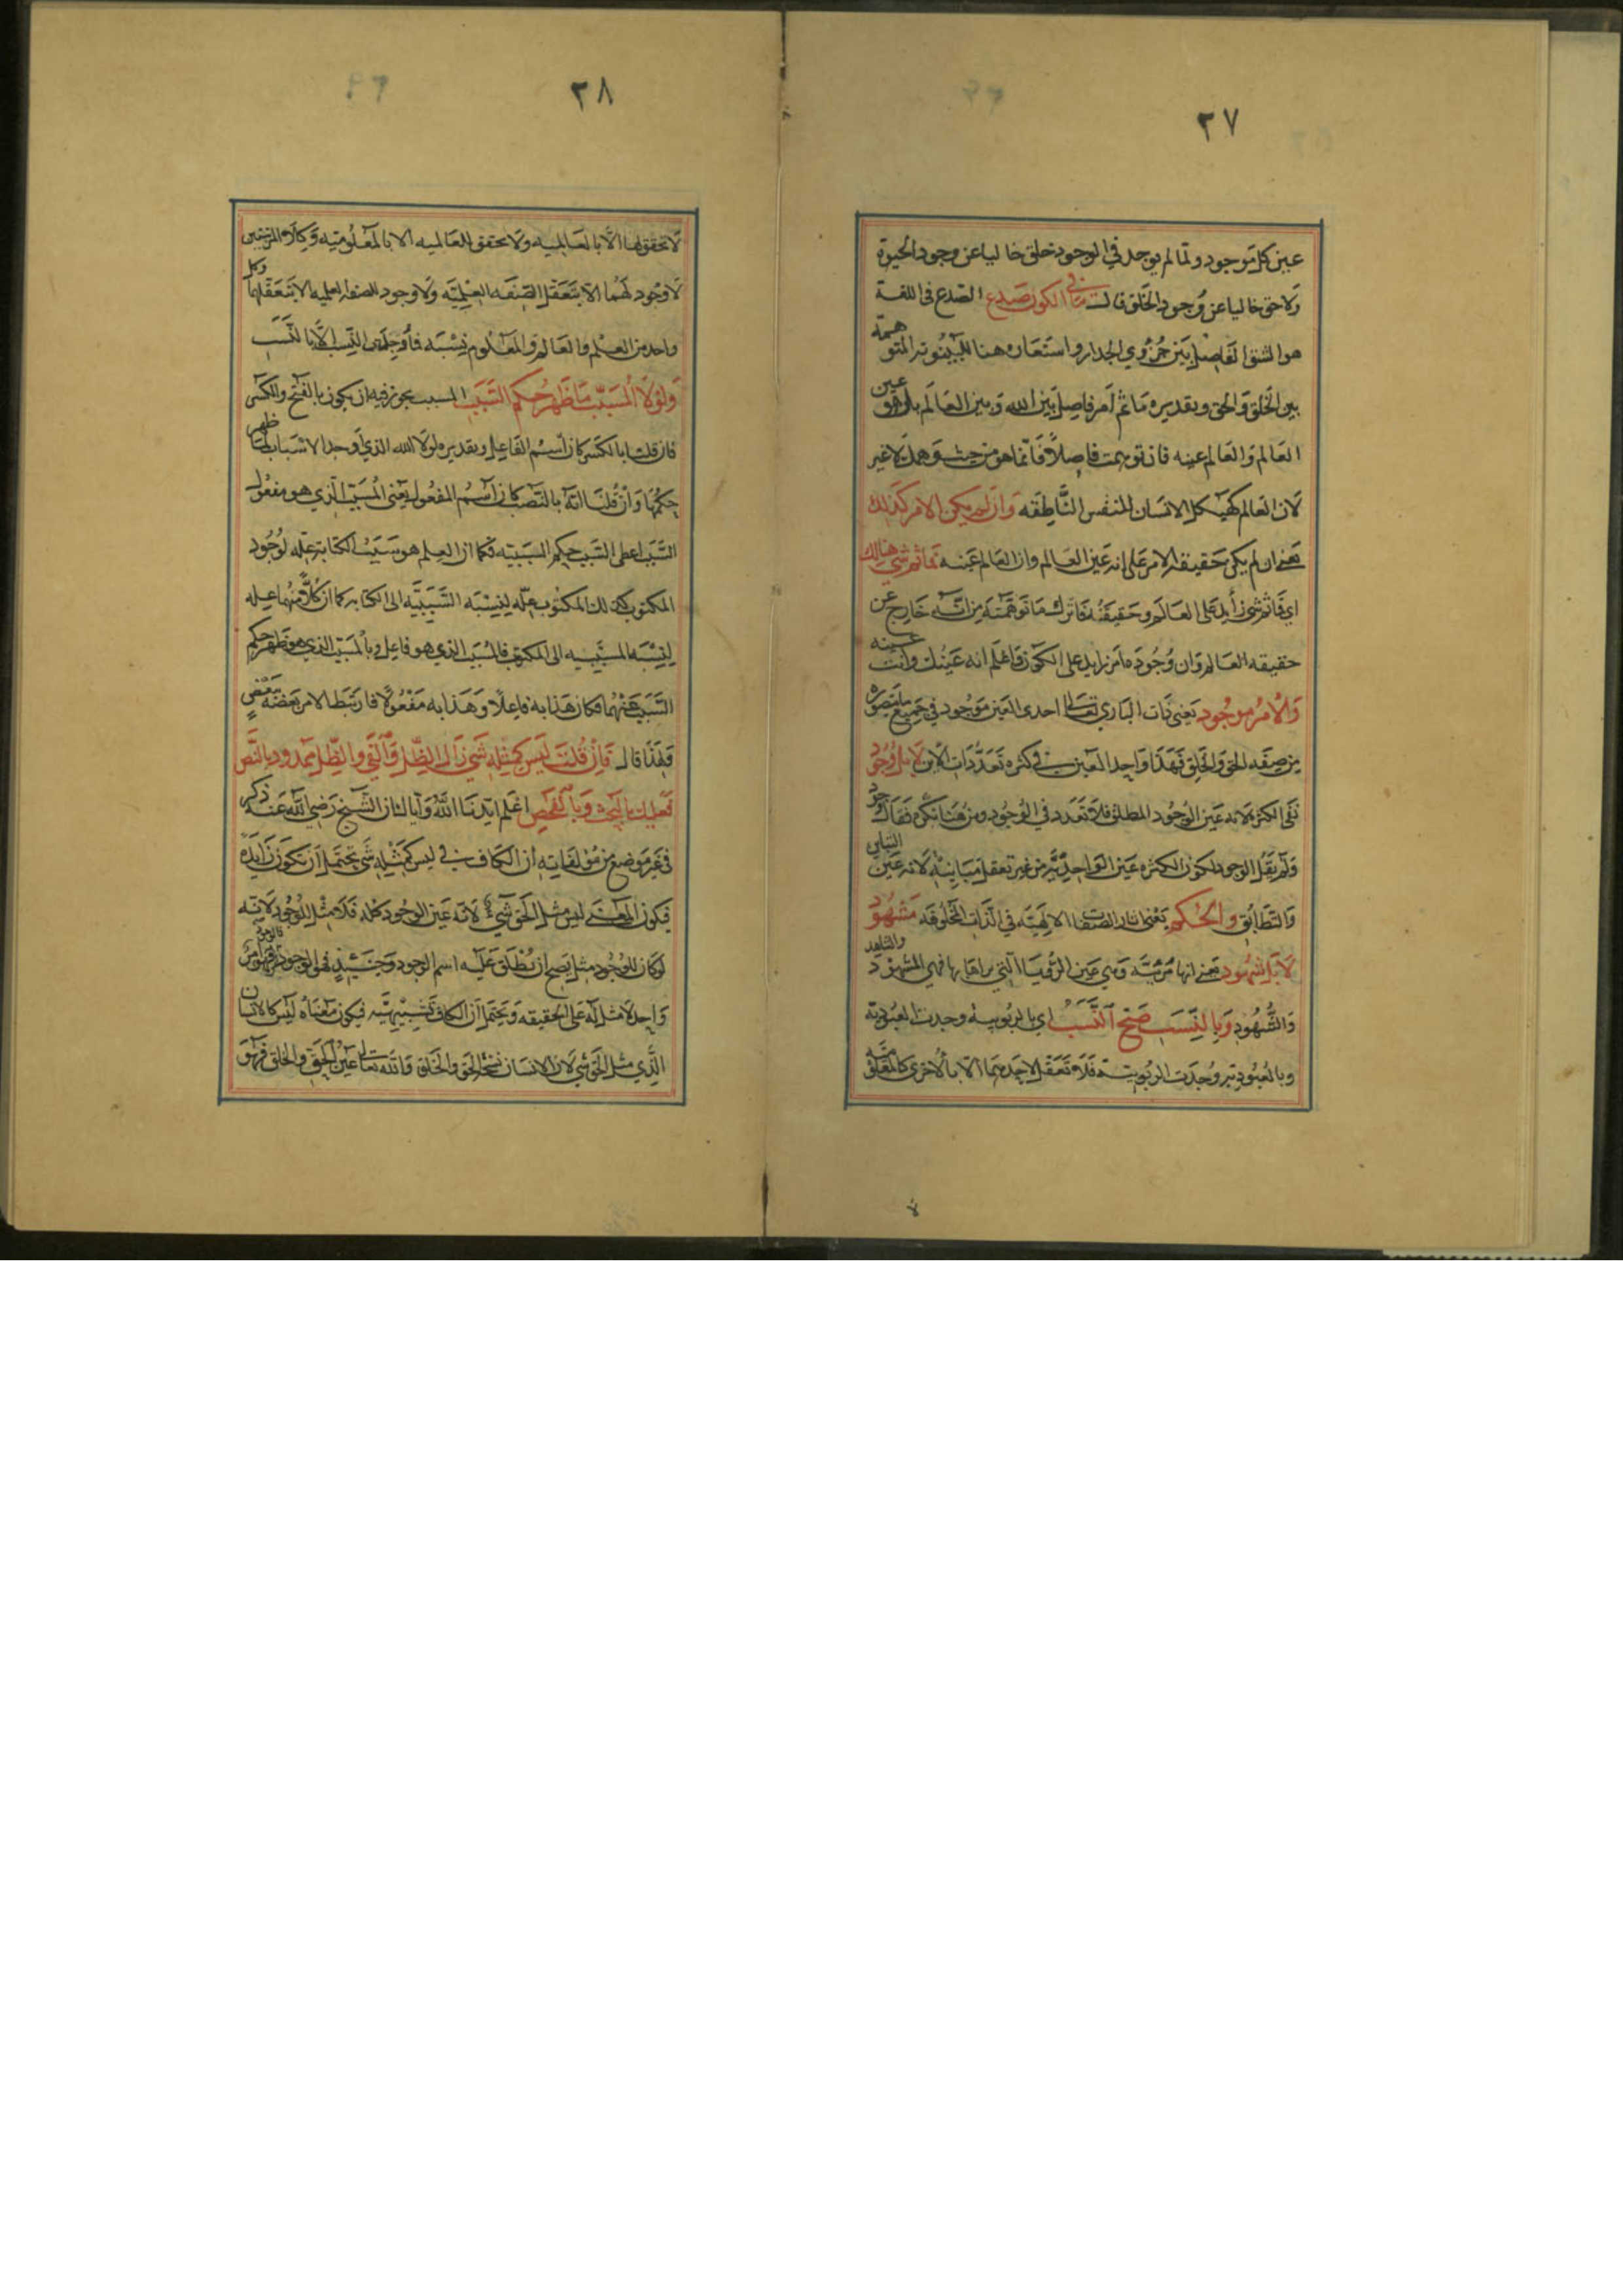 ٢٧
عين كل موجود ولما لم يوجد في الوجود خلق خاليا عن وجود الحيوة
ولا حق خاليا عن وجود الخلق قال ما في الكون صدع الصدع في اللغة
هو الشق الفاصل بين جزوي الجدار واستعاره هنا للبينونه المتوهمة
بين الخلق والحق وبقديره ما ثم امر فاصل بين الله وبين العالم بل هو عين
العالم والعالم عينه فان توهمت فاصلاً فانما هو من حيث وهمك لا غير
لان العالم كهيكل الانسان للنفس الناطقه وان لم يكن الامر كذلك
يعني ان لم يكن حقيقة الامر على انه عين العالم وان العالم عينه فما ثم شي هنالك
اي فما ثم شي زايد على العالم وحقيقته فاترك ما توهمته من انه خارج عن
حقيقه العالم وان وجوده امر زايد على الكون فاعلم انه عينك وانت عينه
والامر موجود يعني ذات الباري تعالى احدى العين موجود في جميع ما يتصوره
من صفه الحق والخلق فهذا واحد العين في كثره تعددات لا بل وجود
نفى الكثره لانه عين الوجود المطلق فلا تعدد في الوجود ومن هنا نكره فقال وجود
ولم يقل الوجود لكون الكثره عين الواحديه من غير تعقل مباينه لانه عين التباين
والتطابق والحكم يعني اثار الصفات الالهيه في الذات المخلوقه مشهود
لا بل شهود يعني انها مرئيه وهي عين الرؤيا التي يراها بها فهي المشهود والشاهد
والشهود وبالنسب صح النسب اي بالربوبيه وجدت العبوديه
وبالعبوديه وجدت الربوبيه فلا تعقل لاحديهما الا بالاخرى كالمعلوميه
٢٨
لا تحقق لها الا بالعالميه ولا تحقق للعالميه الا بالمعلوميه وكلا المرتبتين
لا وجود لهما الا بتعقل الصفه العلميه ولا وجود للصفه العلميه الا بتعقل كل
واحد من العلم والعالم والمعلوم نسبه فما وجدت النسب الا بالنسب
ولولا المسبب ما ظهر حكم السبب المسبب يجوز فيه ان يكون بالفتح والكسر
فان قلت بالكسر كان اسم الفاعل وبقديره لولا الله الذي اوجد الاسباب لما ظهر
حكمها وان قلنا انه بالنصب كان اسم المفعول يعني المسبب الذي هو مفعول
السبب اعطى السبب حكم السببيه فكما ان العلم هو سبب الكتابه علة لوجود
المكتوب كذلك المكتوب علة لنسبه السببيه الى الكتابه كما ان كلاً منهما عله
لنسبه المسببيه الى المكتوب فالمسبب الذي هو فاعل وبالمسبب الذي هو ظهر حكم
السبب عنهما فكان هذا به فاعلاً وهذا به مفعولاً فارتبط الامر بعضه ببعض
فلهذا قال فان قلت ليس كمثله شي زال الظل والفي والظل ممدود بالنص
فعليك بالبحث وبالفحص اعلم ايدنا الله وايا لنا ان الشيخ رضي الله عنه ذكر
في غير موضع من مؤلفاته ان الكاف في ليس كمثله شي تحتمل ان تكون زايدة
فيكون المعنى ليس مثل الحق شي لانه عين الوجود كله فلا مثل للوجود لانه
لو كان للوجود مثل يصح ان نطلق عليه اسم الوجود وحينئذ فهو الوجود فالوجود امر
واحد لا مثل له على الحقيقه ويحتمل ان الكاف تشبيهيه فيكون معناه ليس كالانسان
الذي مثل الحق شي لان الانسان نسخة الحق والخلق والله تعالى عين الحق والخلق فهو